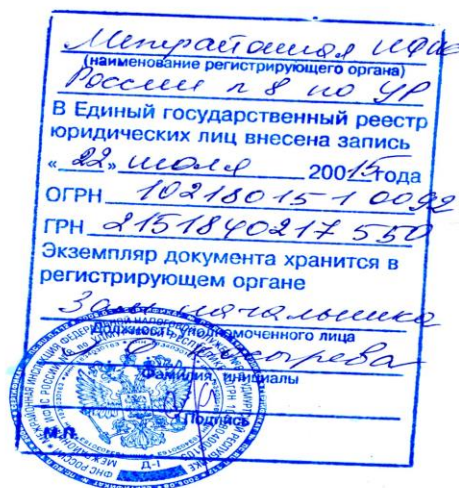 Межрайонная ИФНС
(наименование регистрирующего органа)
России № 8 по УР
В Единый государственный реестр
юридических лиц внесена запись
« 22 » июля 20015 года
ОГРН 1021801510092
ГРН 2151840217550
Экземпляр документа хранится в
регистрирующем органе
Зам. начальника
Должность уполномоченного лица
Фамилия, инициалы
Подпись
М.П.
Д-1